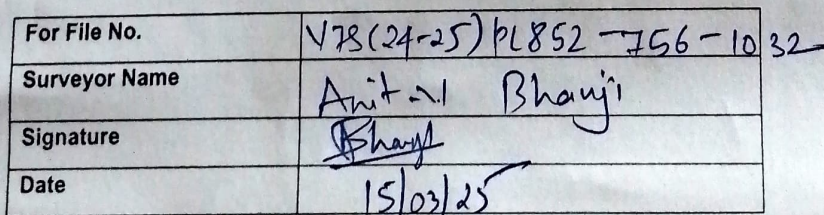 For File No. VIS(24-25)PL852-756-1032
Surveyor Name Bhanji
Signature
Date 15/03/25